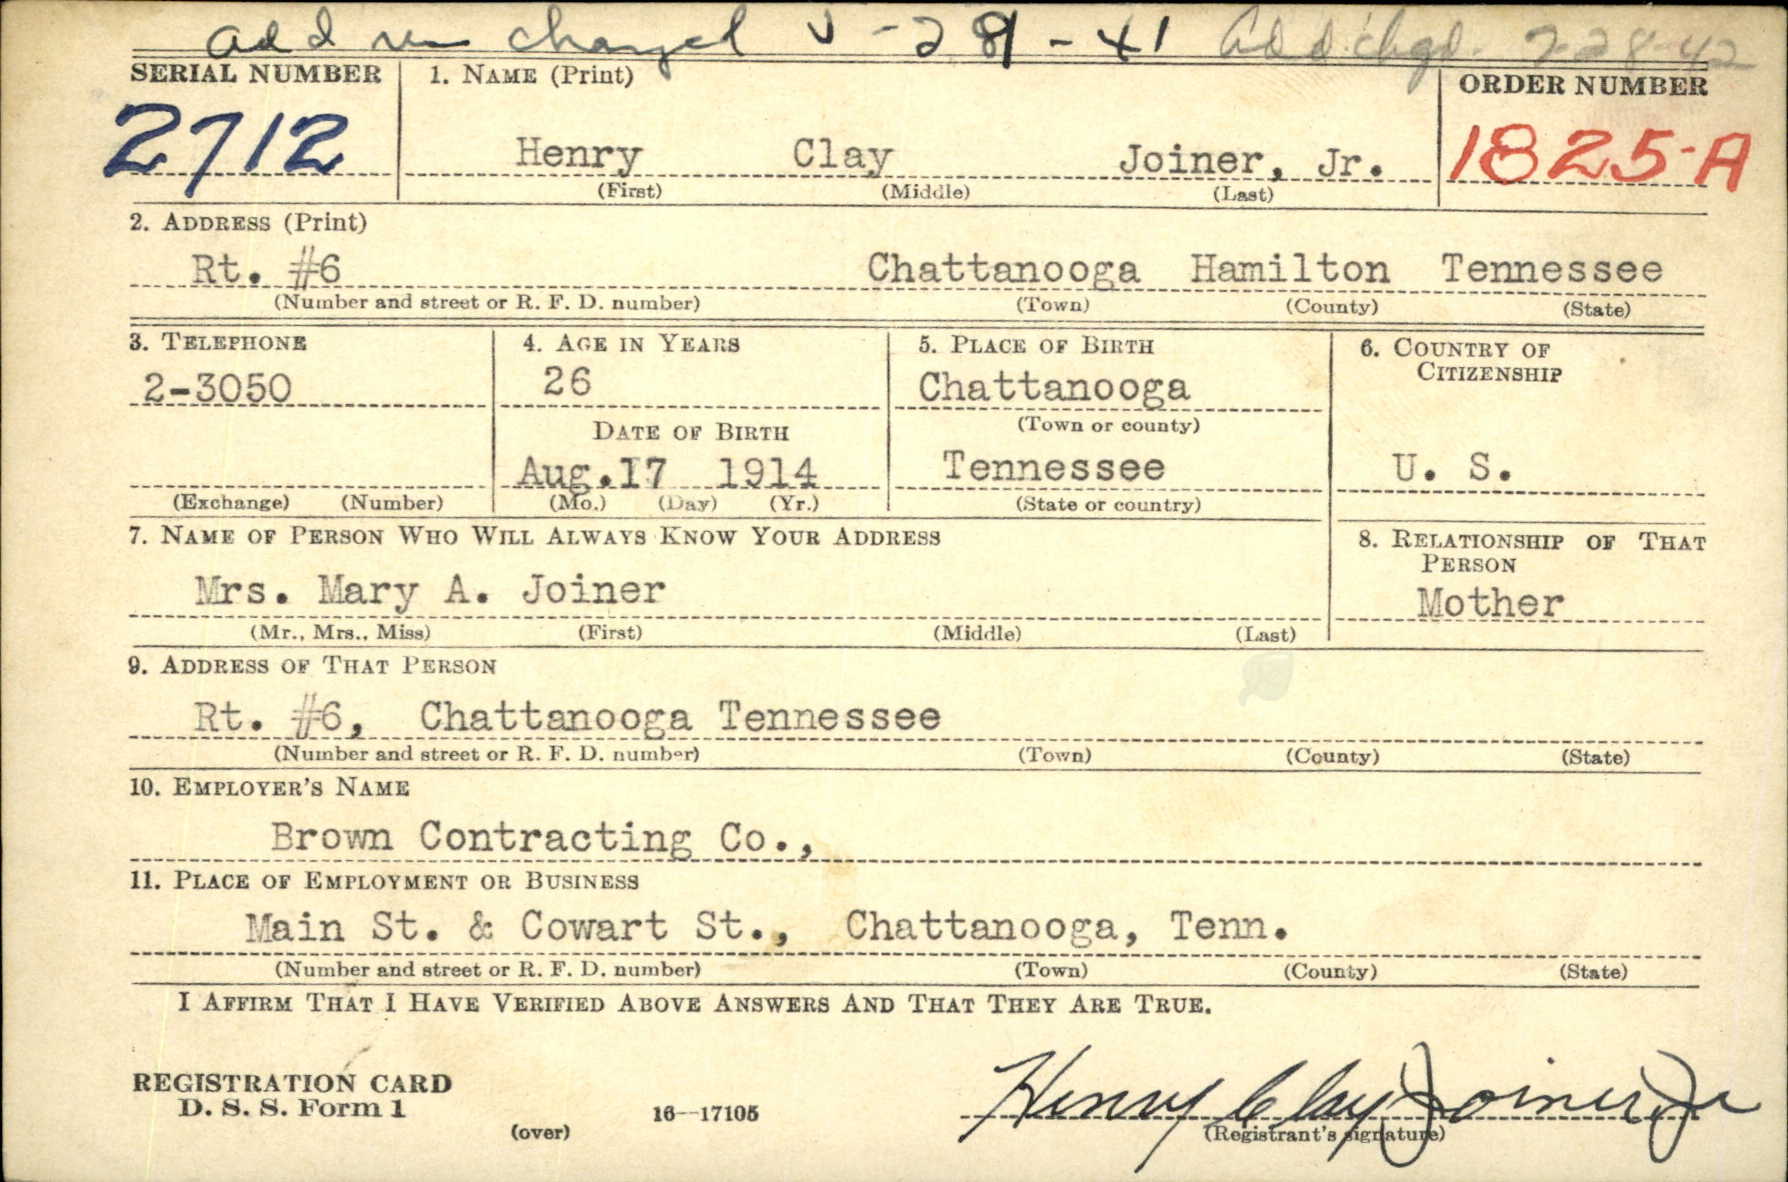 Address changed - 28 - 41 Add. chgd. 7-28-42
SERIAL NUMBER 1. NAME (Print) ORDER NUMBER
2712 Henry Clay Joiner, Jr. 1825-A
(First) (Middle) (Last)
2. ADDRESS (Print)
Rt. #6 Chattanooga Hamilton Tennessee
(Number and street or R. F. D. number) (Town) (County) (State)
3. TELEPHONE 4. AGE IN YEARS 5. PLACE OF BIRTH 6. COUNTRY OF CITIZENSHIP
2-3050 26 Chattanooga
DATE OF BIRTH (Town or county)
Aug.17 1914 Tennessee U. S.
(Exchange) (Number) (Mo.) (Day) (Yr.) (State or country)
7. NAME OF PERSON WHO WILL ALWAYS KNOW YOUR ADDRESS 8. RELATIONSHIP OF THAT PERSON
Mrs. Mary A. Joiner Mother
(Mr., Mrs., Miss) (First) (Middle) (Last)
9. ADDRESS OF THAT PERSON
Rt. #6, Chattanooga Tennessee
(Number and street or R. F. D. number) (Town) (County) (State)
10. EMPLOYER'S NAME
Brown Contracting Co.,
11. PLACE OF EMPLOYMENT OR BUSINESS
Main St. & Cowart St., Chattanooga, Tenn.
(Number and street or R. F. D. number) (Town) (County) (State)
I AFFIRM THAT I HAVE VERIFIED ABOVE ANSWERS AND THAT THEY ARE TRUE.
REGISTRATION CARD
D. S. S. Form 1 16—17105 Henry Clay Joiner Jr
(over) (Registrant's signature)